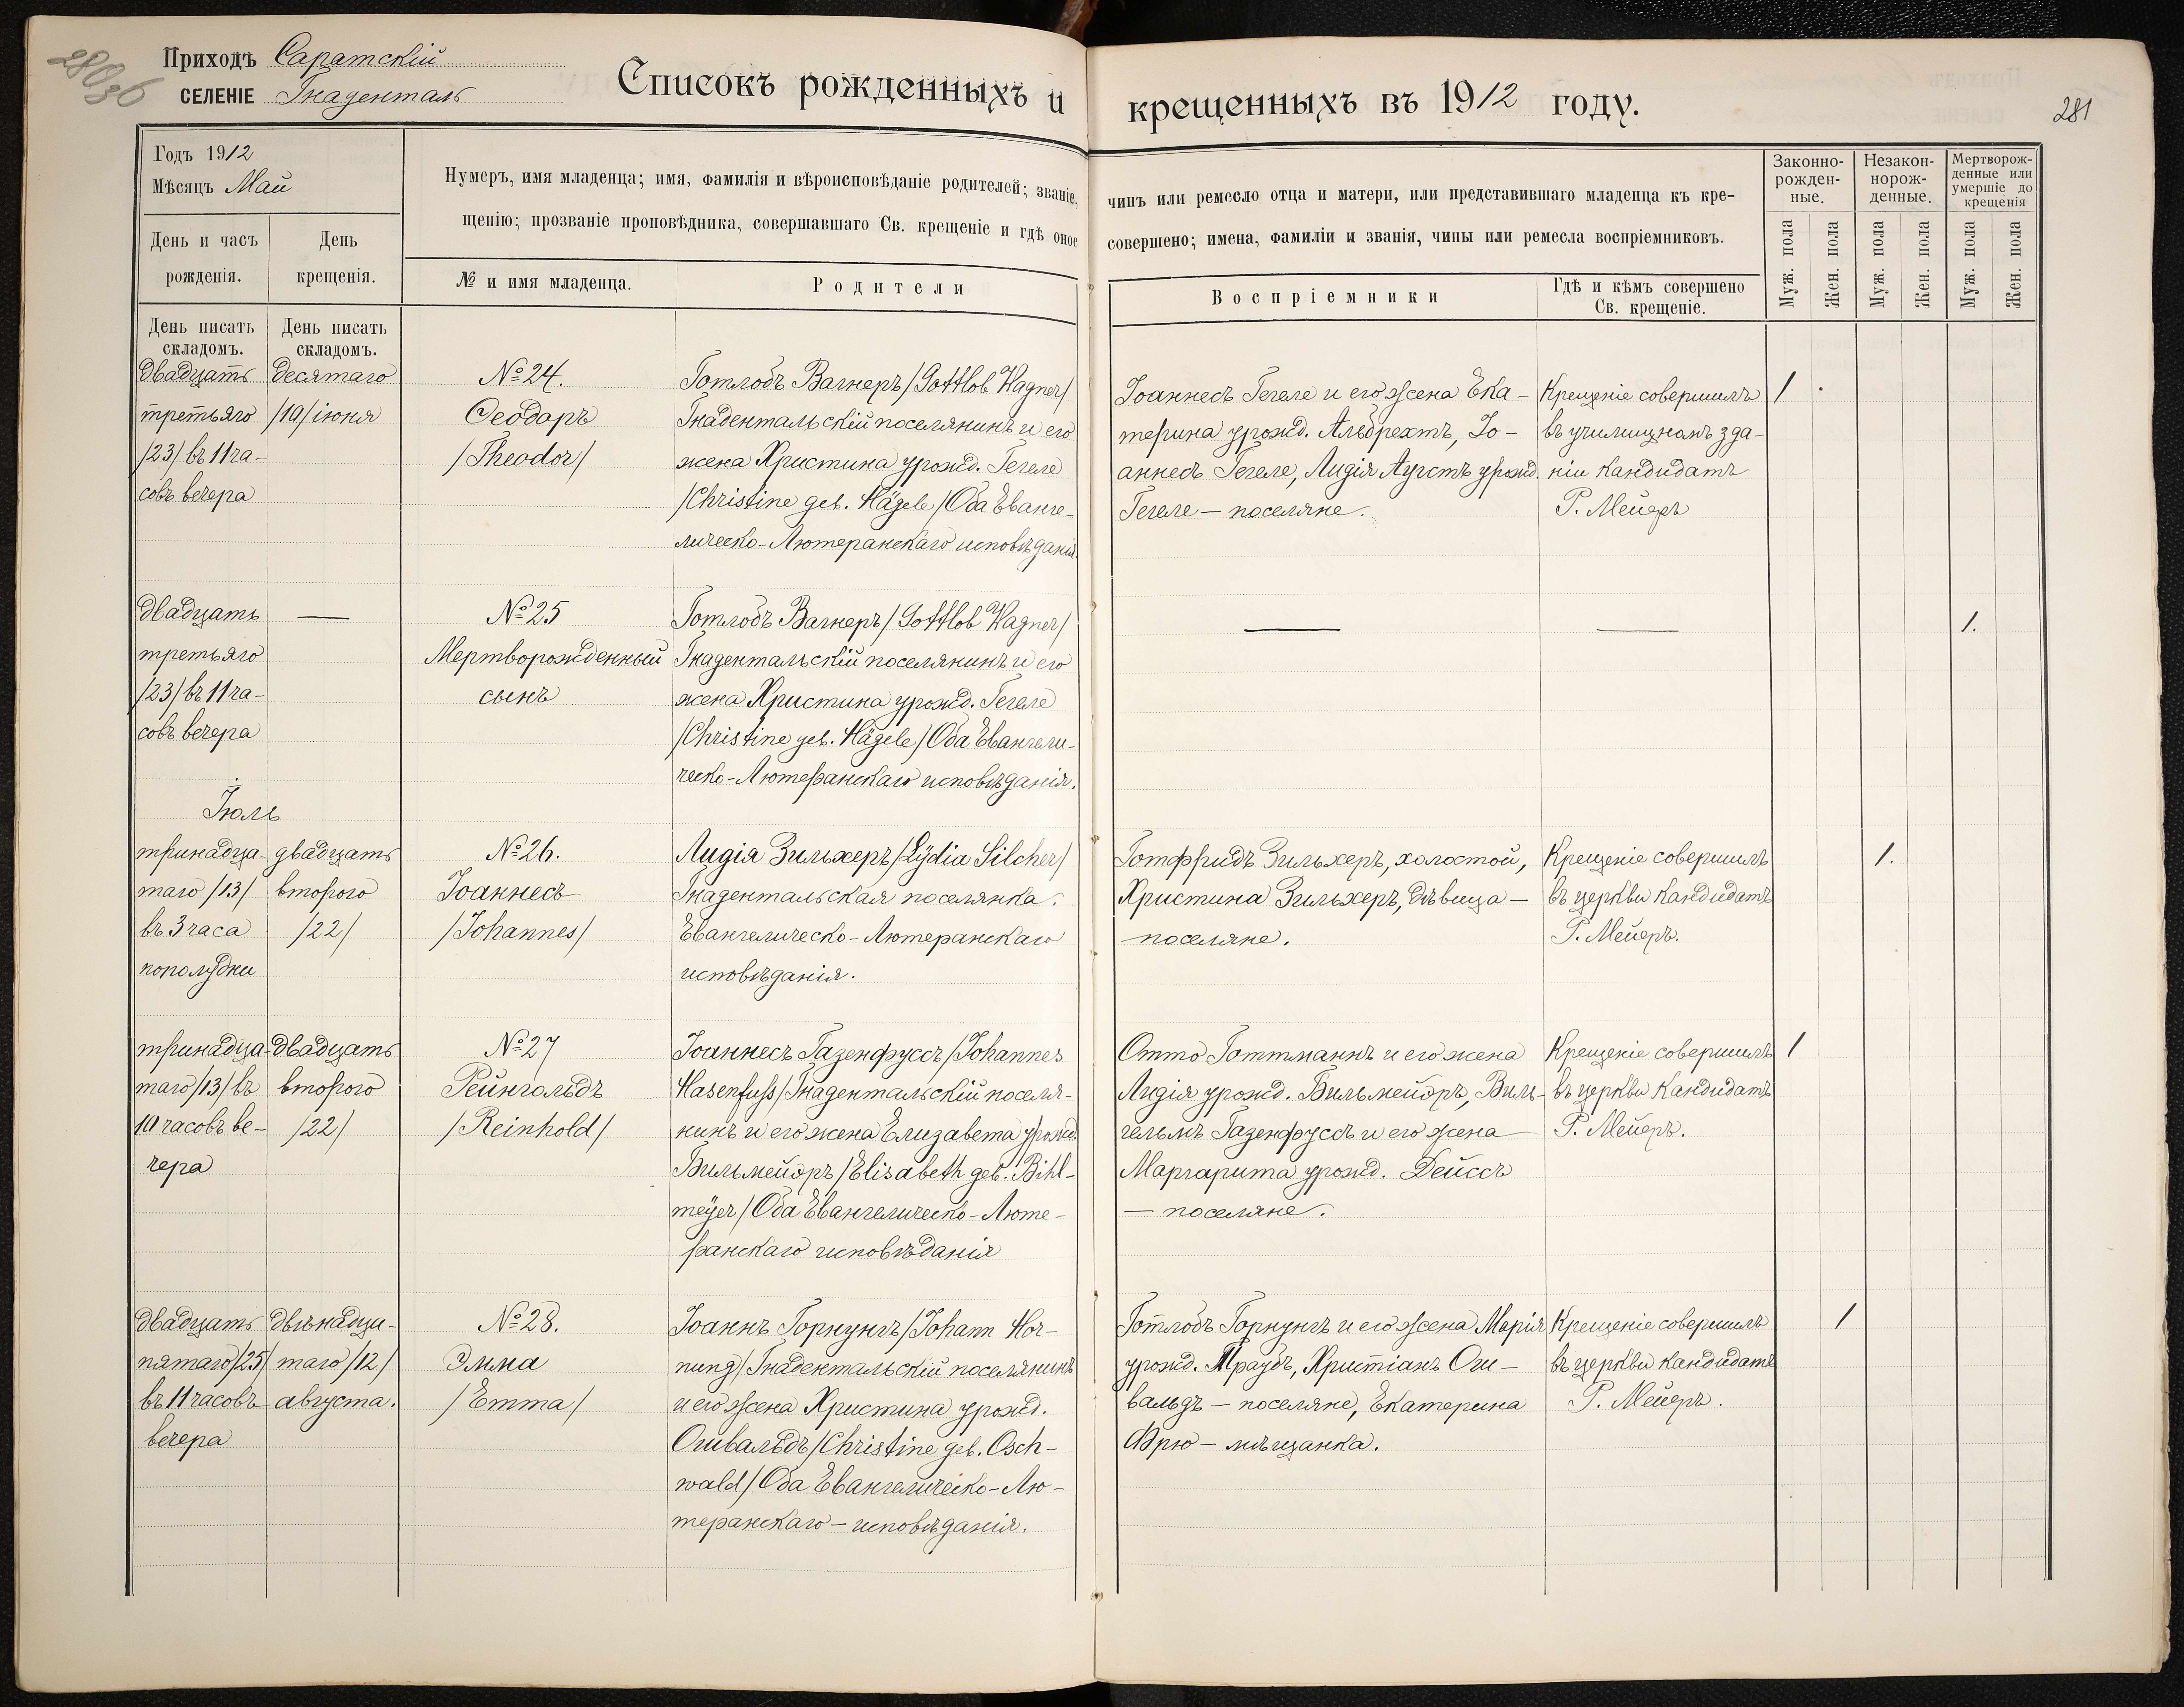 Приходъ Саратскій
СЕЛЕНІЕ Гнаденталь
Списокъ рожденныхъ и крещенныхъ въ 1912 году.
281
Годъ 1912
Мѣсяцъ Май
День и часъ рожденія.
День крещенія.
Нумеръ, имя младенца; имя, фамилія и вѣроисповѣданіе родителей; званіе, чинъ или ремесло отца и матери, или представившаго младенца къ кре-
щенію; прозваніе проповѣдника, совершавшаго Св. крещеніе и гдѣ оное совершено; имена, фамиліи и званія, чины или ремесла воспріемниковъ.
№ и имя младенца.
Родители
Воспріемники
Гдѣ и кѣмъ совершено
Св. крещеніе.
Законно-
рожден-
ные.
Незакон-
норож-
денные.
Мертворож-
денные или
умершіе до
крещенія
Муж. пола
Жен. пола
Муж. пола
Жен. пола
Муж. пола
Жен. пола
День писать
складомъ.
День писать
складомъ.
двадцать
третьяго
/23/ въ 11 ча-
совъ вечера
десятаго
/10/ іюня
№ 24.
Ѳеодоръ
/Theodor/
Готлобъ Вагнеръ /Gottlob Wagner/
Гнадентальскій поселянинъ и его
жена Христина урожд. Гегеле
/Christine geb. Hägele/ Оба Еванге-
лическо-Лютеранскаго исповѣданія.
Іоаннесъ Гегеле и его жена Ека-
терина урожд. Альбрехтъ, Іо-
аннесъ Гегеле, Лидія Аустъ урожд.
Гегеле — поселяне.
Крещеніе совершилъ
въ училищномъ зда-
ніи Кандидатъ
Г. Мейеръ
1
двадцать
третьяго
/23/ въ 11 ча-
совъ вечера
—
№ 25
Мертворожденный
сынъ
Готлобъ Вагнеръ /Gottlob Wagner/
Гнадентальскій поселянинъ и его
жена Христина урожд. Гегеле
/Christine geb. Hägele/ Оба Евангели-
ческо-Лютеранскаго исповѣданія.
—
—
1.
Іюль
тринадца-
таго /13/
въ 3 часа
пополудни
двадцать
второго
/22/
№ 26.
Іоаннесъ
/Johannes/
Лидія Зильхеръ /Lÿdia Silcher/
Гнадентальская поселянка.
Евангелическо-Лютеранскаго
исповѣданія.
Готфридъ Зильхеръ, холостой,
Христина Зильхеръ, дѣвица —
— поселяне.
Крещеніе совершилъ
въ церкви Кандидатъ
Г. Мейеръ.
1.
тринадца-
таго /13/ въ
10 часовъ ве-
чера
двадцать
второго
/22/
№ 27
Рейнгольдъ
/Reinhold/
Іоаннесъ Газенфуссъ /Johannes
Hasenfuss/ Гнадентальскій поселя-
нинъ и его жена Елизавета урожд.
Бильмейеръ /Elisabeth geb. Bihl-
meÿer/ Оба Евангелическо-Люте-
ранскаго исповѣданія
Отто Готтманнъ и его жена
Лидія урожд. Бильмейеръ, Виль-
гельмъ Газенфуссъ и его жена
Маргарита урожд. Дейссъ
— поселяне.
Крещеніе совершилъ
въ церкви Кандидатъ
Г. Мейеръ.
1
двадцать
пятаго /25/
въ 11 часовъ
вечера
двѣнадца-
таго /12/
августа.
№ 28.
Эмма
/Emma/
Іоаннъ Горнунгъ /Johann Hor-
nung/ Гнадентальскій поселянинъ
и его жена Христина урожд.
Ошвальдъ /Christine geb. Osch-
wald/ Оба Евангелическо-Лю-
теранскаго — исповѣданія.
Готлобъ Горнунгъ и его жена Марія
урожд. Траубъ, Христіанъ Ош-
вальдъ — поселяне, Екатерина
Фрю — мѣщанка.
Крещеніе совершилъ
въ церкви кандидатъ
Г. Мейеръ.
1